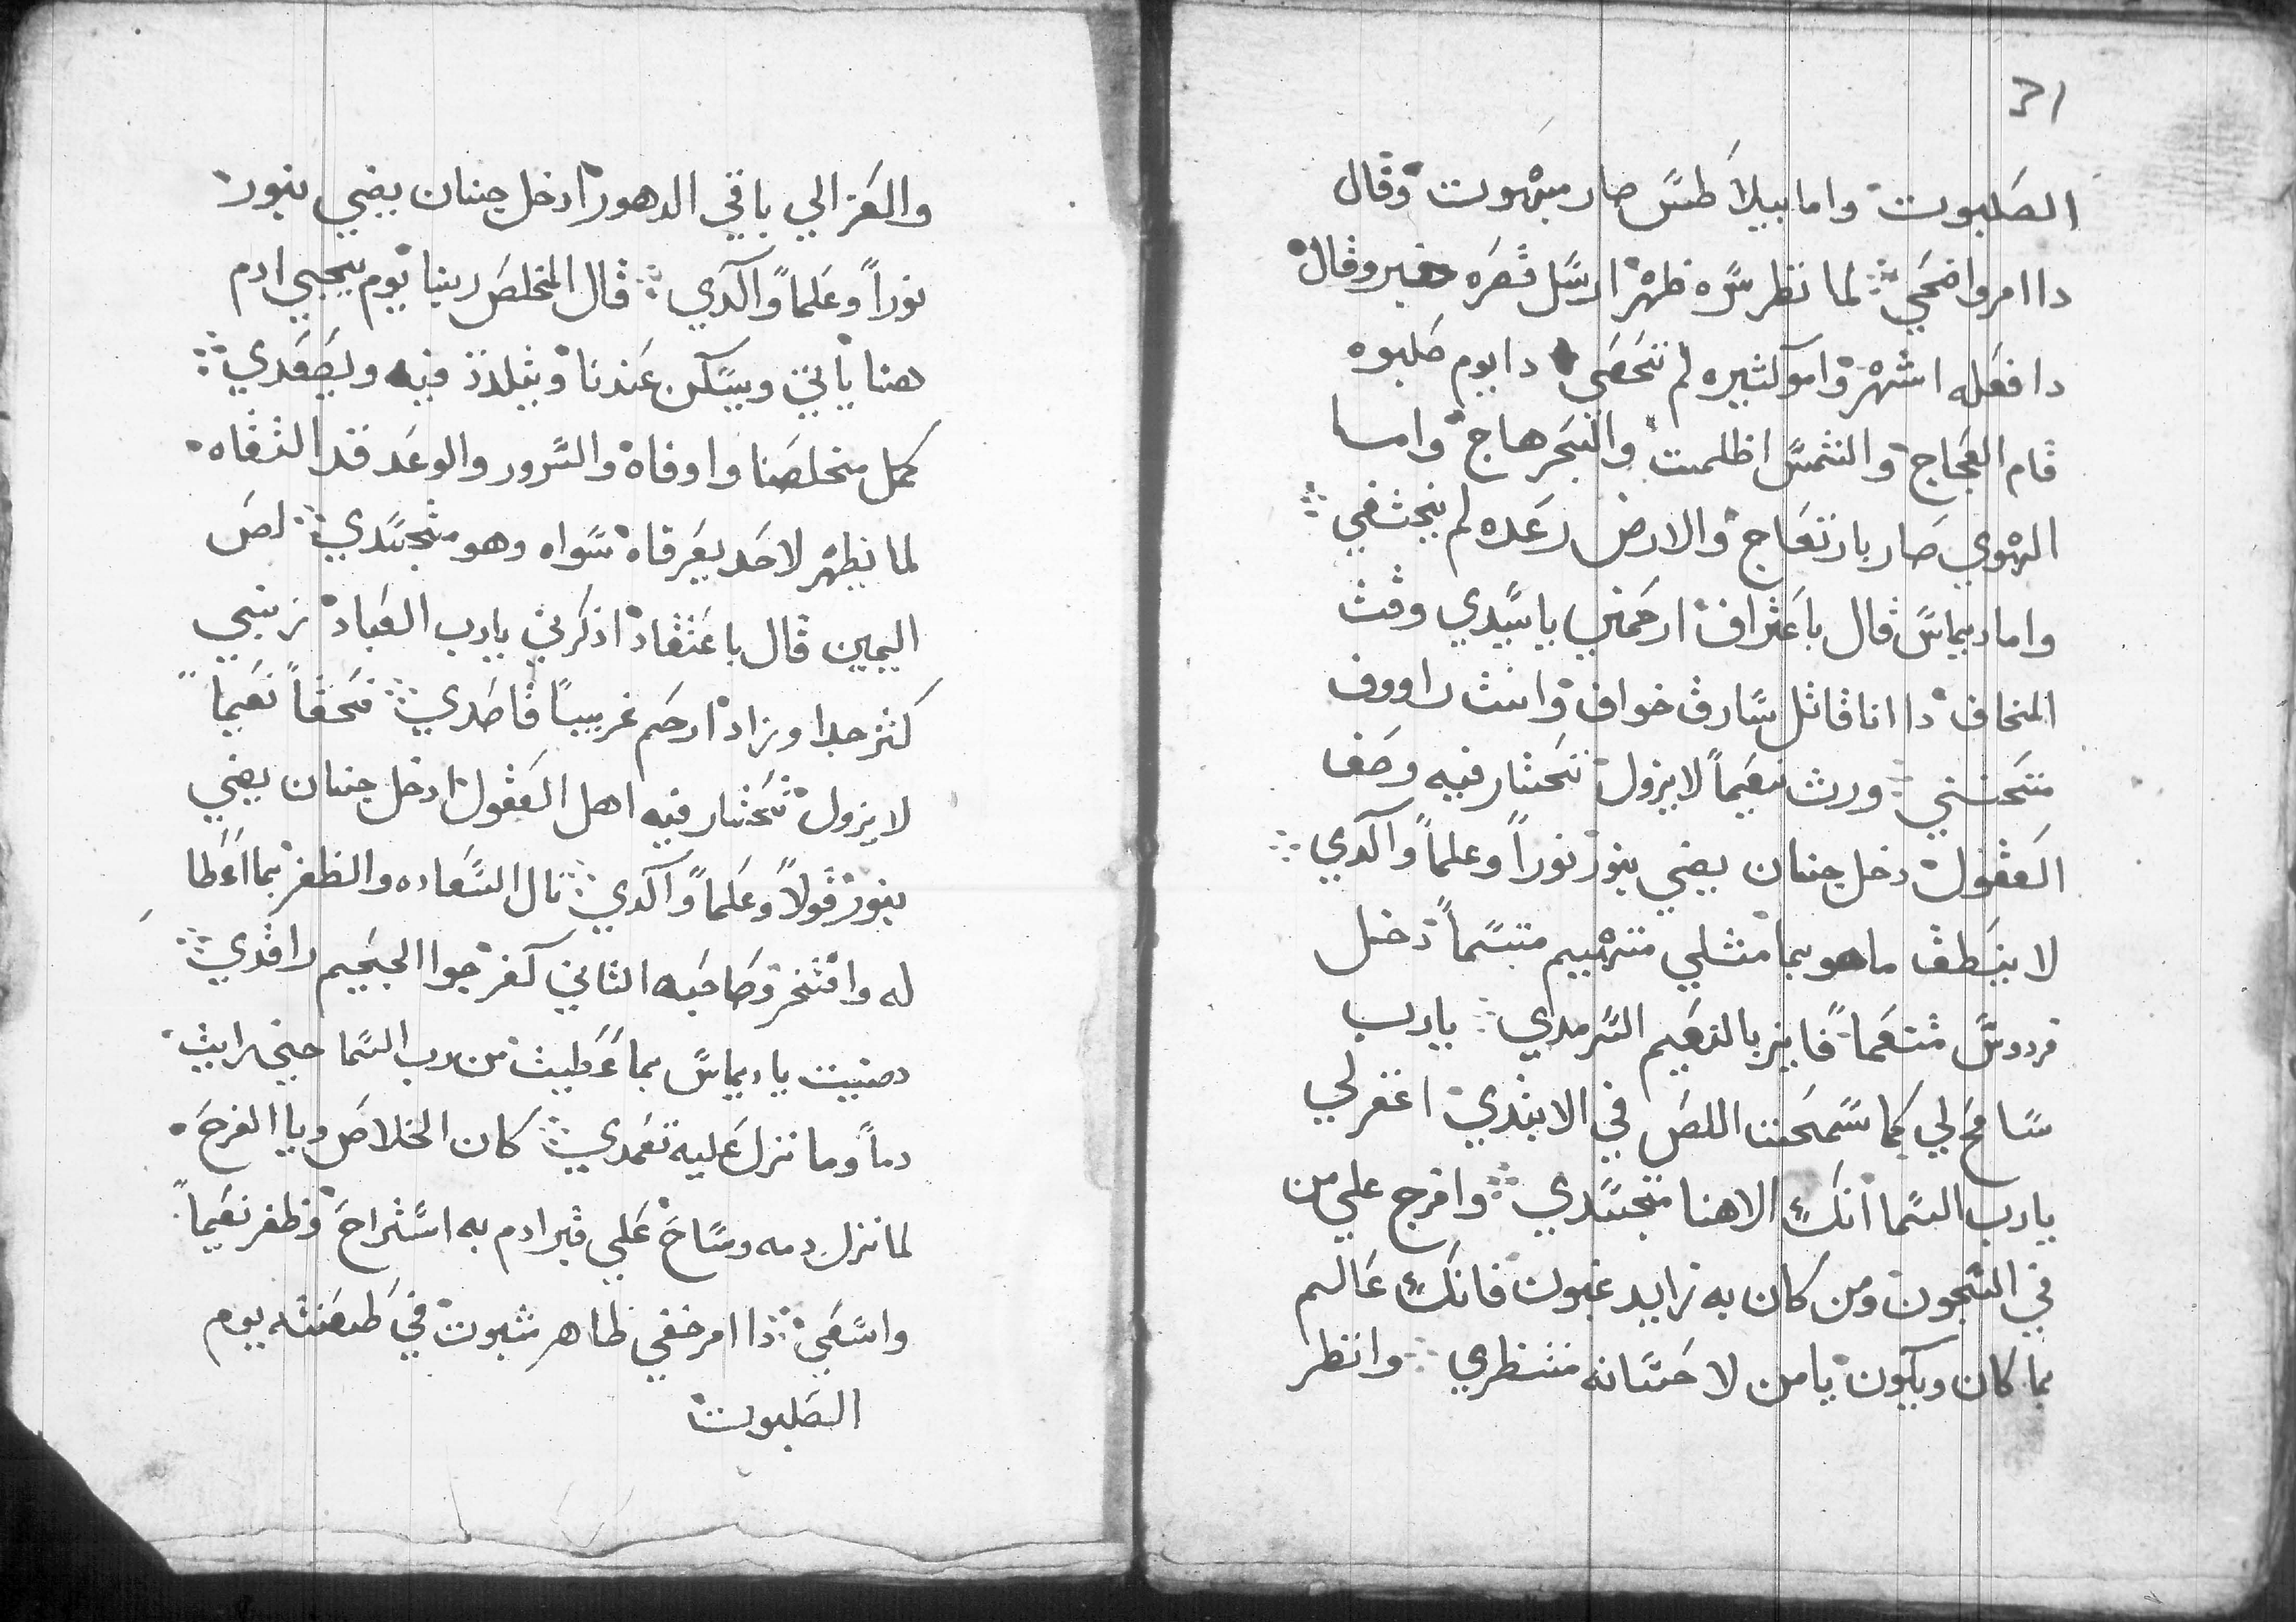 31
الصلبوت واما بيلاطس صار مبهوت وقال
دا امر واضحي لما نظر سره ظهر ارسل قصره خبر وقال
دا فعله اشتهر واموا كثيره لم تتحصي دا يوم صلبوه
قام العجاج والشمس اظلمت والبحر هاج وامسا
الهوي صار بارتعاج والارض رعده لم يختفي
واما ديماس قال باعتراف ارحمني يا سيدي وقت
المخاف دا انا قاتل سارق خواف وانت راووف
متحنني ورث نعيماً لا يزول تحتار فيه وصف
العقول دخل جنان يضي بنور نوراً وعلماً واكدي
لا ينطق ما هو بما مثلي مترهبيم متبسماً دخل
فردوس متنعماً فايز بالنعيم السرمدي يارب
سامح لي كما سمحت اللص في الابتدي اغفر لي
يارب السما انك الاهنا متجسدي وافرج علي من
في السجون ومن كان به زايد غبون فانك عالم
بما كان ويكون يا من لاحسانه منتظري وانظر
والعز الي باقي الدهور ادخل جنان يضي بنور
نوراً وعلماً واكدي قال المخلص ربنا يوم يجي ادم
هنا ياتي ويسكن عندنا ويتلذذ فيه ويصعدي
كمل مخلصنا واوفاه والسرور والوعد قد التقاه
لما يظهر لاحد يعرفاه سواه وهو متجسدي لص
اليمين قال باعتقاد اذكرني يارب العباد ذنبي
كثر جدا وزاد ارحم غريباً قاصدي فحقاً نعيماً
لا يزول تحتار فيه اهل العقول ادخل جنان يضي
بنور قولاً وعلماً واكدي نال السعاده والظفر بما اعطا
له وافتخر وصاحبه الثاني كفر جوا الجحيم راقدي
دصنيت يا ديماس بما عطيت من رب السما حين رايت
دماً وما نزل عليه تعمدي كان الخلاص ويا الفرح
لما نزل دمه وساح علي قبر ادم به استراح وظفر نعيماً
واسعي ذا امر خفي ظاهر ثبوت في طعنته يوم
الصلبوت